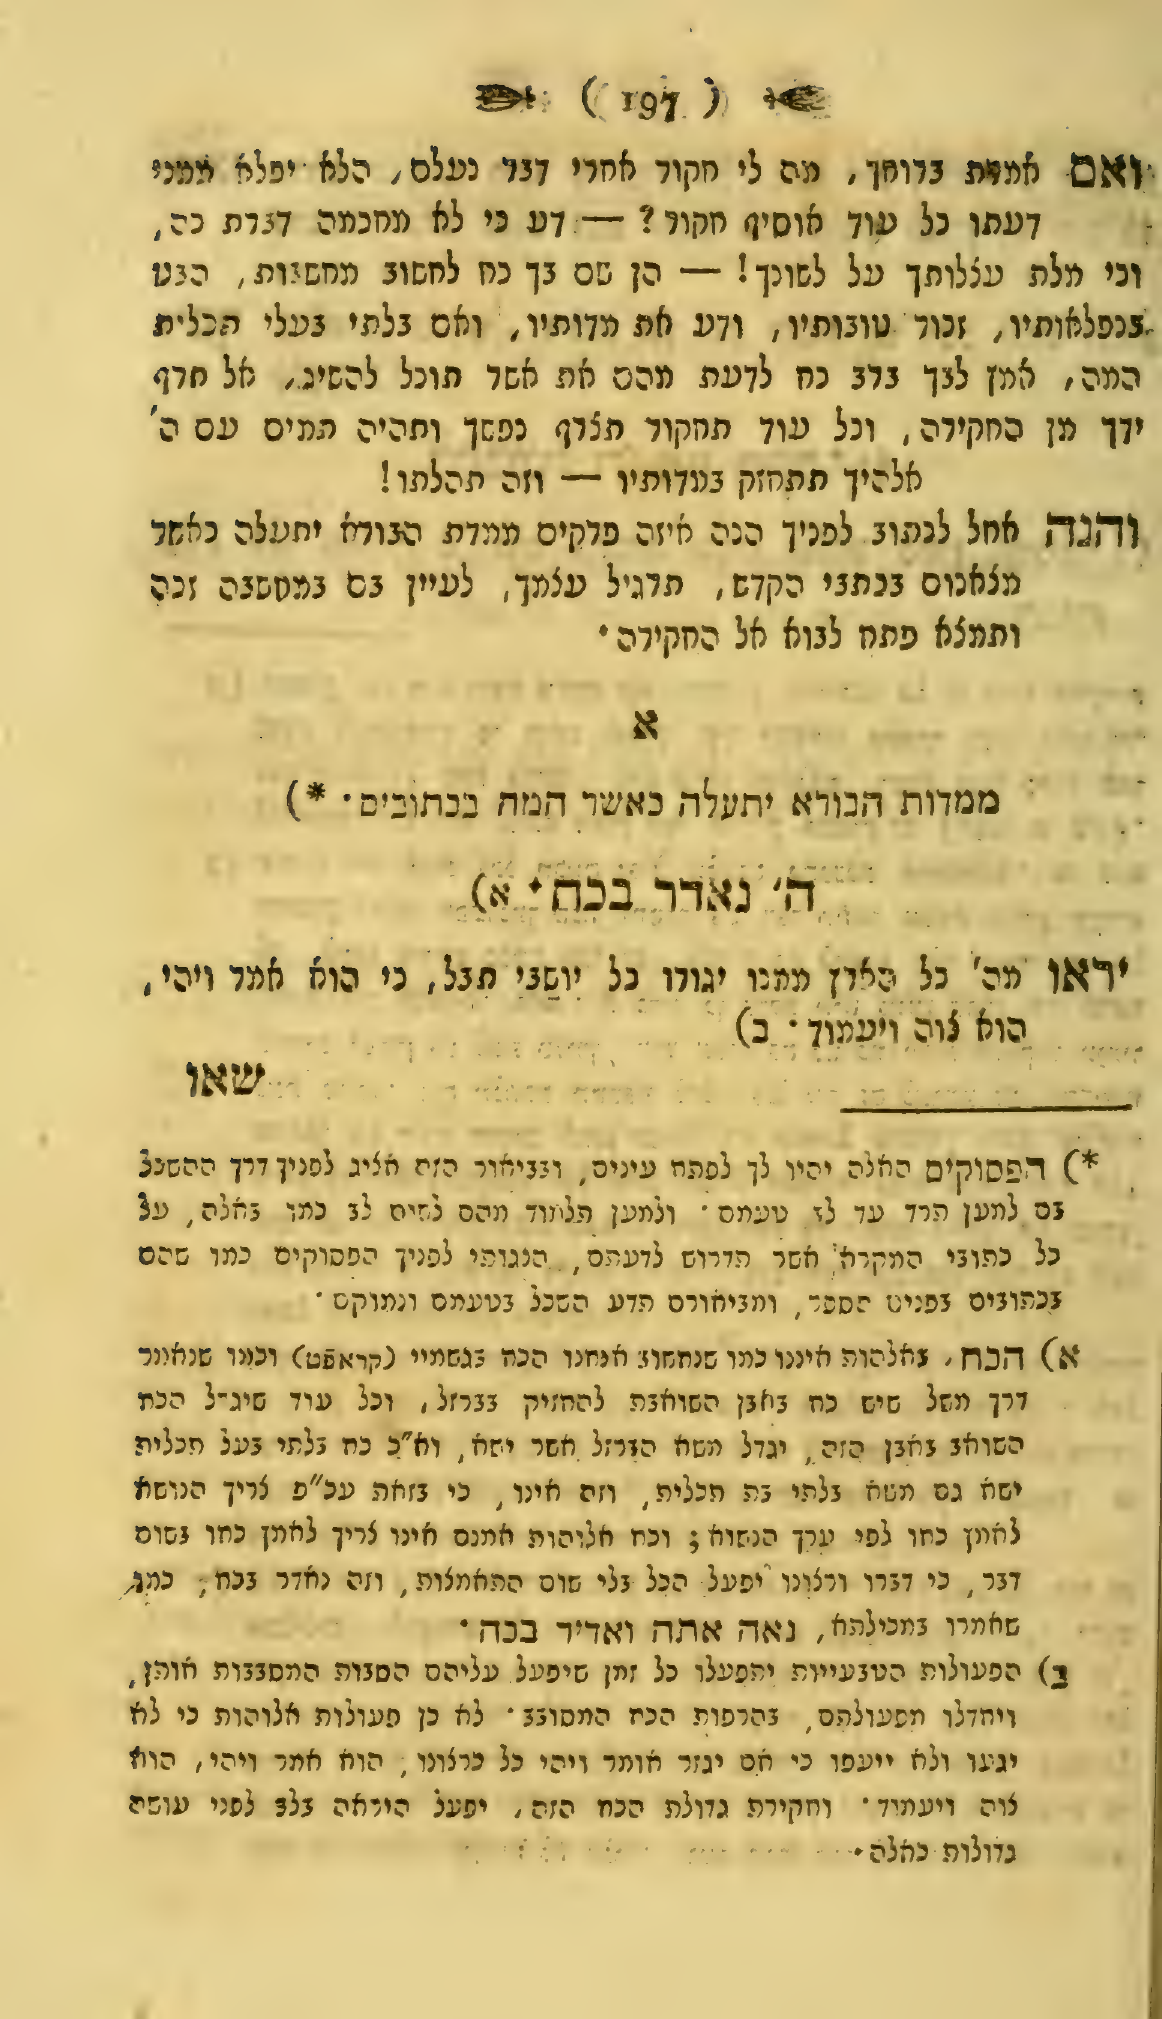 ( 197 )
ואם אמרת ברוחך, מה לי חקור אחרי דבר נעלם, הלא יפלא ממני
דעתו כל עוד אוסיף חקור? — דע כי לא מחכמה דברת כה,
וכי מלת עצלותך על לשונך! — הן שם בך כח לחשוב מחשבות, הבט
בנפלאותיו, זכור טובותיו, ודע את מדותיו, ואם בלתי בעלי תכלית
המה, אמץ לבך ברב כח לדעת מהם את אשר תוכל להשיג, אל תרף
ידך מן החקירה, וכל עוד תחקור תצרף נפשך ותהיה תמים עם ה'
אלהיך תתחזק במדותיו — וזה תהלתו!
והנה אחל לכתוב לפניך הנה איזה פרקים ממדת הבורא יתעלה כאשר
מצאנום בכתבי הקדש, תרגיל עצמך, לעיין בם במחשבה זכה
ותמצא פתח לבוא אל החקירה·
א
ממדות הבורא יתעלה כאשר המה בכתובים· *)
ה' נאדר בכח· א)
יראו מה' כל הארץ ממנו יגורו כל יושבי תבל, כי הוא אמר ויהי,
הוא צוה ויעמוד· ב)
שאו
*) הפסוקים האלה יהיו לך לפתח עינים, ובביאור הזה אציג לפניך דרך ההשכל
בם למען תרד עד לב טעמם· ולמען תלמוד מהם לשים לב כמו באלה, על
כל כתובי המקרא אשר תדרוש לדעתם, הנגותי לפניך הפסוקים כמו שהם
בכתובים בפנים הספר, ומביאורם תדע השכל בטעמם ונמוקם·
א) הכח, באלהות איננו כמו שנחשוב אנחנו הכח בגשמיי (קראפט) וכמו שנאמר
דרך משל שיש כח באבן השואבת להחזיק בברזל, וכל עוד שיגדל הכח
השואב באבן הזה, יגדל משא הברזל אשר ישא, וא"כ כח בלתי בעל תכלית
ישא גם משא בלתי בת תכלית, וזה אינו, כי בזאת עכ"פ צריך הנושא
לאמץ כחו לפי ערך הנשוא; וכח אלוהות אמנם אינו צריך לאמץ כחו בשום
דבר, כי דברו ורצונו יפעל הכל בלי שום התאמצות, וזה נאדר בכח, כמו
שאמרו במכילתא, נאה אתה ואדיר בכח·
ב) הפעולות הטבעייות יתפעלו כל זמן שיפעל עליהם הסבות המסבבות אותן,
ויחדלו מפעולתם, בהרפות הכח המסובב· לא כן פעולות אלוהות כי לא
יגעו ולא ייעפו כי אם יגזר אומר ויהי כל כרצונו, הוא אמר ויהי, הוא
צוה ויעמוד· וחקירת גדולת הכח הזה, יפעל היראה בלב לפני עושה
גדולות כאלה·